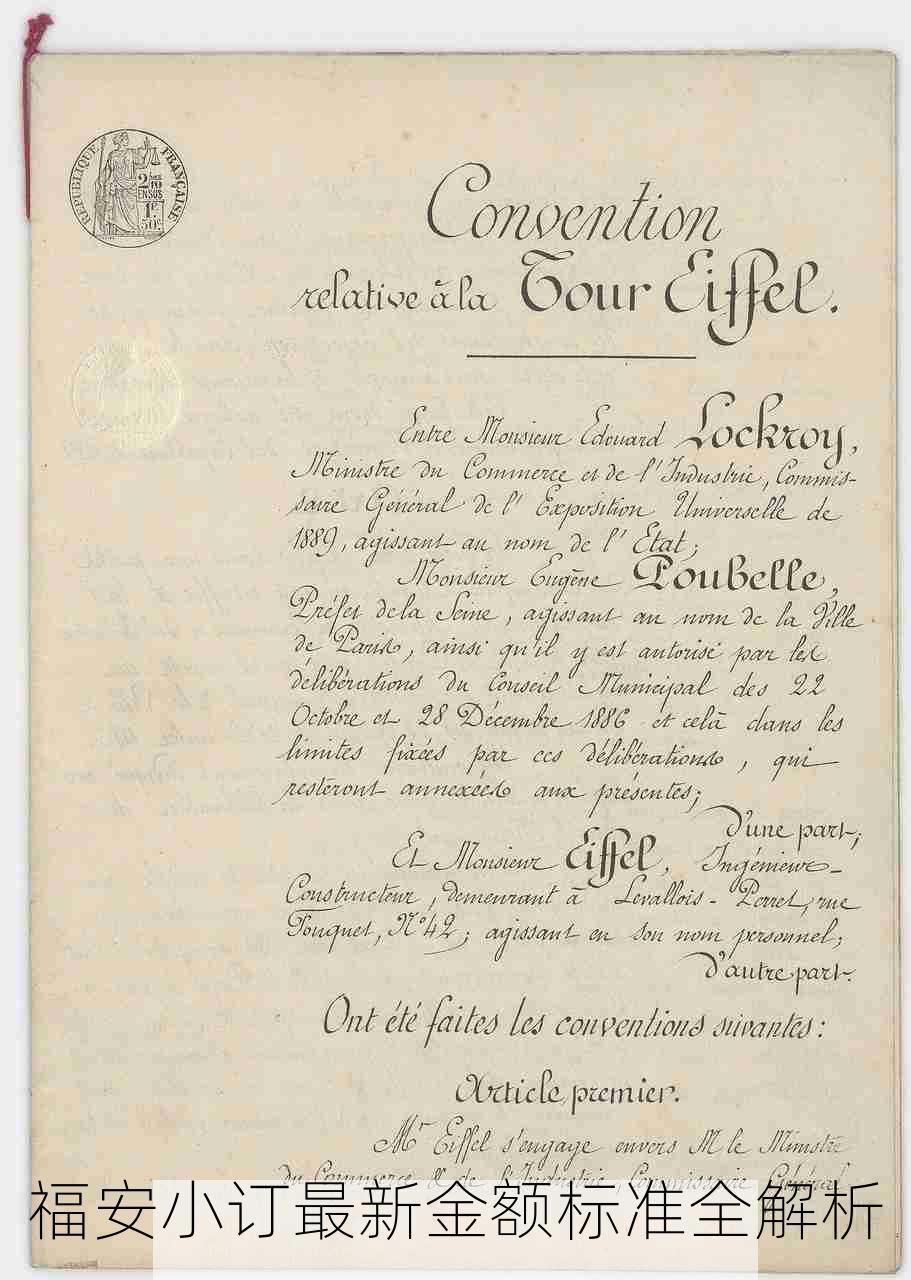 RÉPUBLIQUE FRANÇAISE
2 10
EN SUS
1F
50c
Convention
relative à la Tour Eiffel.
Entre Monsieur Edouard Lockroy,
Ministre du Commerce et de l'Industrie, Commis-
saire Général de l'Exposition Universelle de
1889, agissant au nom de l'Etat;
Monsieur Eugène Poubelle,
Préfet de la Seine, agissant au nom de la Ville
de Paris, ainsi qu'il y est autorisé par les
délibérations du Conseil Municipal des 22
Octobre et 28 Décembre 1886 et celà dans les
limites fixées par ces délibérations, qui
resteront annexées aux présentes;
d'une part;
Et Monsieur Eiffel, Ingénieur-
Constructeur, demeurant à Levallois-Perret, rue
Fouquet, N° 42; agissant en son nom personnel;
d'autre part.
Ont été faites les conventions suivantes:
Article premier.
Mr Eiffel s'engage envers M le Ministre
du Commerce & de l'Industrie, Commissaire Général
福安小订最新金额标准全解析